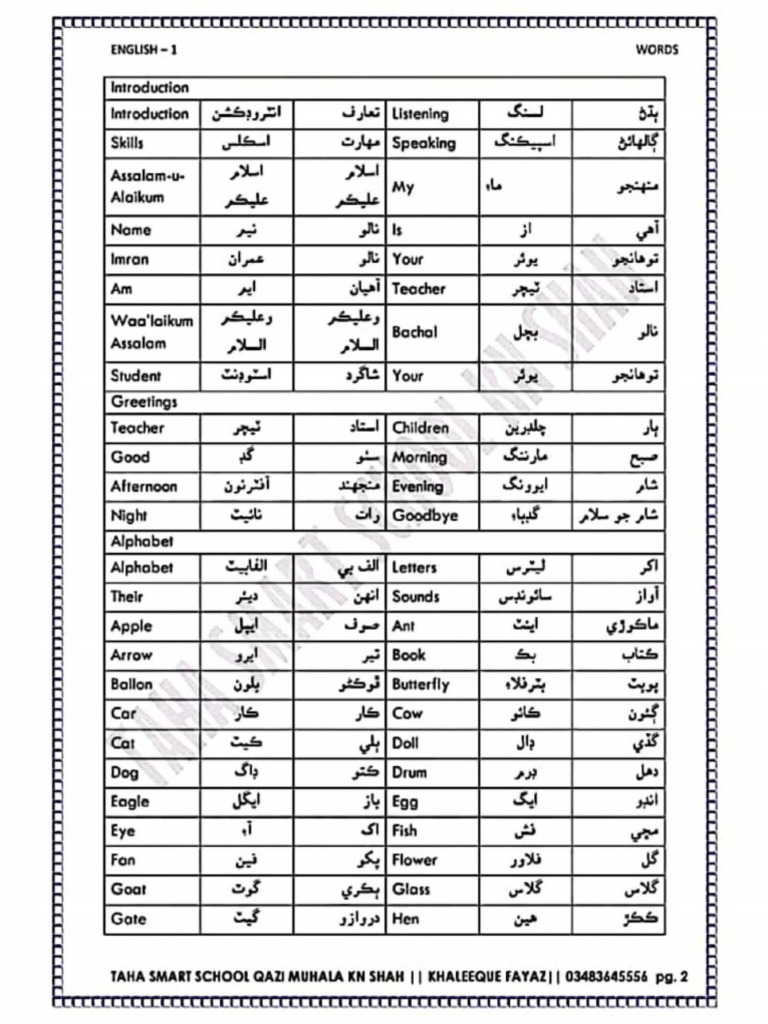 ENGLISH – 1 WORDS
Introduction
Introduction انٽروڊڪشن تعارف Listening لسنگ ٻڌڻ
Skills اسڪلس مهارت Speaking اسپيڪنگ ڳالهائڻ
Assalam-u-Alaikum اسلام عليڪم اسلام عليڪم My ماءِ منهنجو
Name نيم نالو Is از آهي
Imran عمران نالو Your يوئر توهانجو
Am ايم آهيان Teacher ٽيچر استاد
Waa'laikum Assalam وعليڪم السلام وعليڪم السلام Bachal بچل نالو
Student اسٽوڊنٽ شاگرد Your يوئر توهانجو
Greetings
Teacher ٽيچر استاد Children چلڊرين ٻار
Good گڊ سٺو Morning مارننگ صبح
Afternoon آفٽرنون منجهند Evening ايوونگ شام
Night نائيٽ رات Goodbye گڊباءِ شام جو سلام
Alphabet
Alphabet الفابيٽ الف بي Letters ليٽرس اکر
Their ديئر انهن Sounds سائونڊس آواز
Apple ايپل صوف Ant اينٽ ماڪوڙي
Arrow ايرو تير Book بڪ ڪتاب
Ballon بلون ڦوڪڻو Butterfly بٽرفلاءِ پوپٽ
Car ڪار ڪار Cow ڪائو ڳئون
Cat ڪيٽ ٻلي Doll ڊال گڏي
Dog ڊاگ ڪتو Drum ڊرم دهل
Eagle ايگل باز Egg ايگ انڊو
Eye آءِ اک Fish فش مڇي
Fan فين پکو Flower فلاور گل
Goat گوٽ ٻڪري Glass گلاس گلاس
Gate گيٽ دروازو Hen هين ڪڪڙ
TAHA SMART SCHOOL KN SHAH
TAHA SMART SCHOOL QAZI MUHALA KN SHAH || KHALEEQUE FAYAZ|| 03483645556 pg. 2